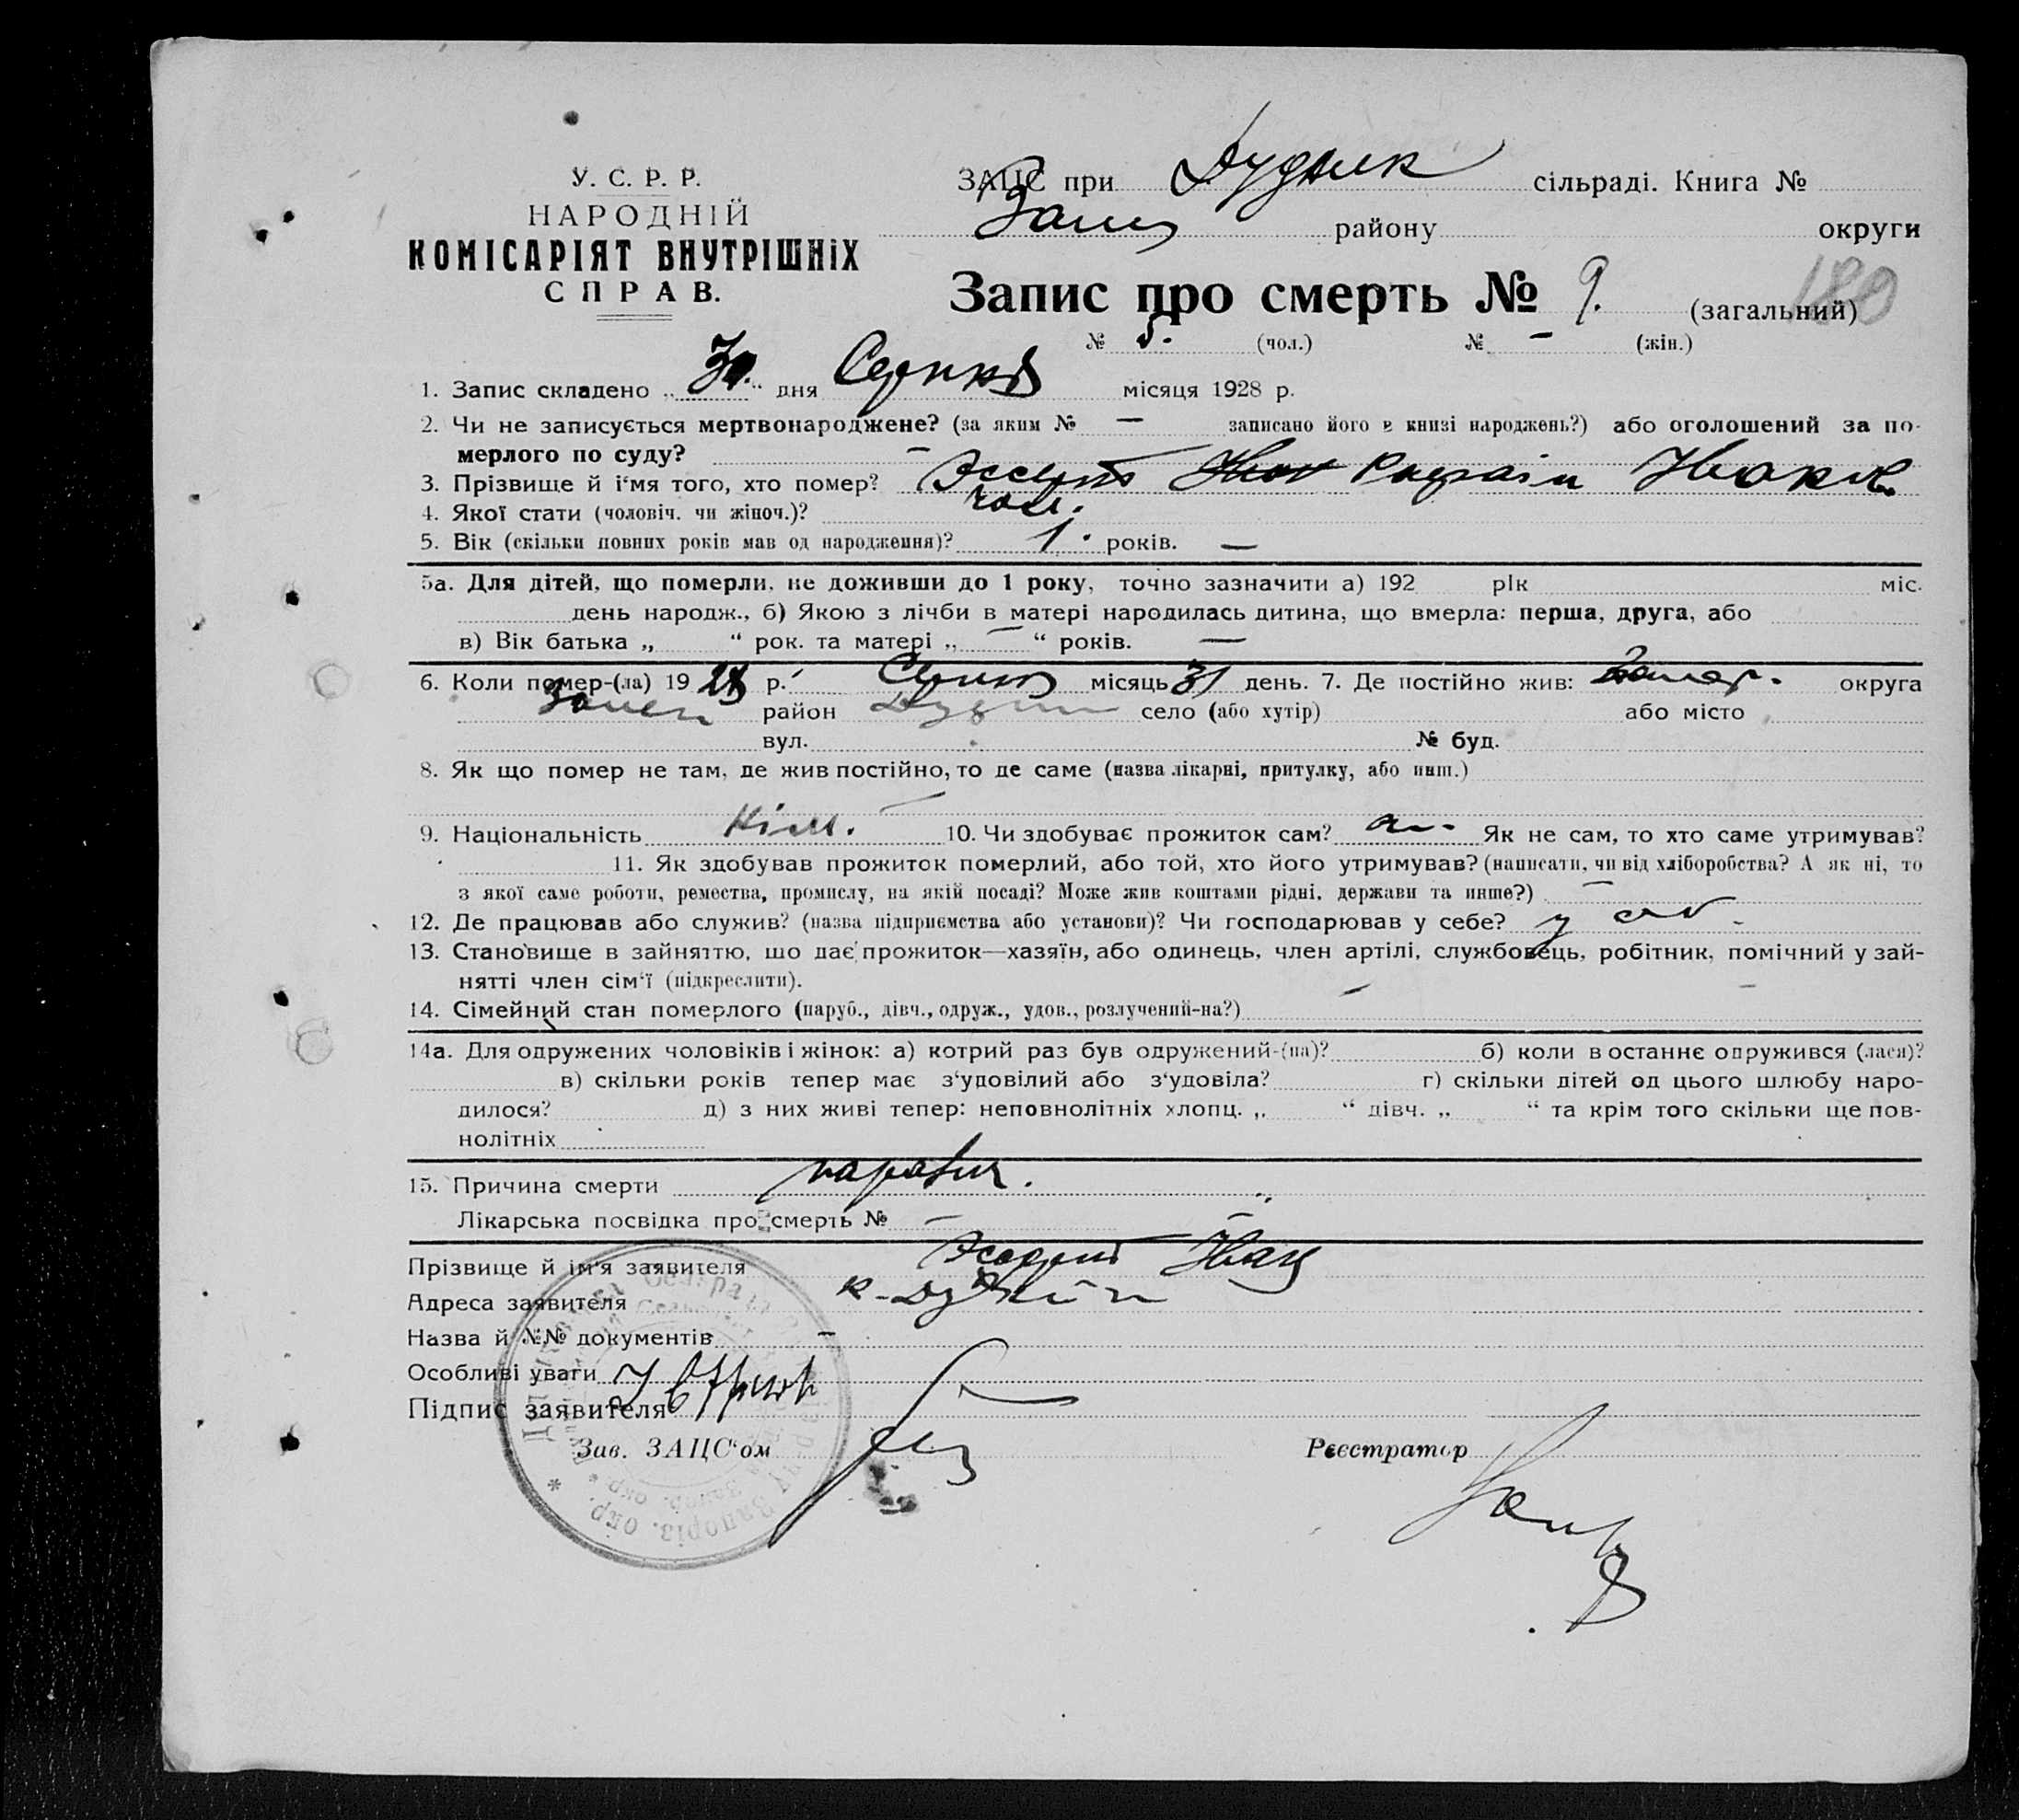 У. С. Р. Р.
НАРОДНІЙ
КОМІСАРІЯТ ВНУТРІШНІХ
СПРАВ.
ЗАЦС при сільраді. Книга №
району округи
Запис про смерть № 9. (загальний)
180
№ 5. (чол.) № — (жін.)
1. Запис складено „ “ дня Серпня місяця 1928 р.
2. Чи не записується мертвонароджене? (за яким № — записано його в книзі народжень?) або оголошений за по-
мерлого по суду? —
3. Прізвище й і‘мя того, хто помер?
4. Якої стати (чоловіч. чи жіноч.)? чол.
5. Вік (скільки повних років мав од народження)? 1. років. —
5а. Для дітей, що померли, не доживши до 1 року, точно зазначити а) 192 рік міс.
день народж., б) Якою з лічби в матері народилась дитина, що вмерла: перша, друга, або
в) Вік батька „ “ рок. та матері „ — “ років. —
6. Коли помер-(ла) 1928 р. Серпня місяць 31 день. 7. Де постійно жив: округа
район село (або хутір) або місто
вул. № буд.
8. Як що помер не там, де жив постійно, то де саме (назва лікарні, притулку, або инш.)
—
9. Національність Нім. 10. Чи здобуває прожиток сам? Як не сам, то хто саме утримував?
11. Як здобував прожиток померлий, або той, хто його утримував? (написати, чи від хліборобства? А як ні, то
з якої саме роботи, ремества, промислу, на якій посаді? Може жив коштами рідні, держави та инше?) —
12. Де працював або служив? (назва підприємства або установи)? Чи господарював у себе? у
13. Становище в зайняттю, що дає прожиток—хазяїн, або одинець, член артілі, службовець, робітник, помічний у зай-
нятті член сім‘ї (підкреслити).
14. Сімейний стан померлого (паруб., дівч., одруж., удов., розлучений-на?) —
14а. Для одружених чоловіків і жінок: а) котрий раз був одружений-(на)? б) коли в останнє одружився (лася)?
в) скільки років тепер має з‘удовілий або з‘удовіла? г) скільки дітей од цього шлюбу наро-
дилося? д) з них живі тепер: неповнолітніх хлопц. „ “ дівч. „ “ та крім того скільки ще пов-
нолітніх
15. Причина смерти
Лікарська посвідка про смерть № —
Прізвище й ім‘я заявителя Іван
Адреса заявителя
Назва й №№ документів —
Особливі уваги
Підпис заявителя
Зав. ЗАЦС‘ом Реєстратор